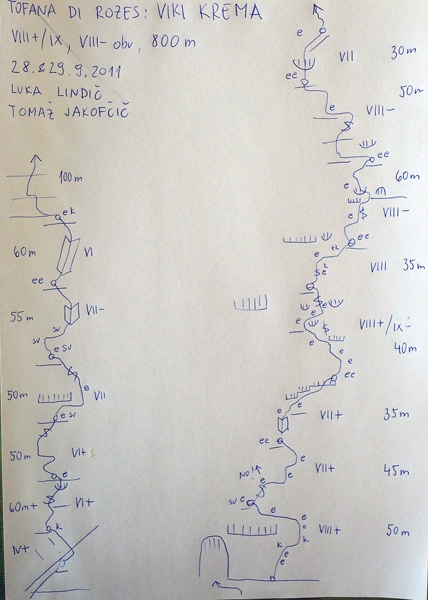 TOFANA DI ROZES: VIKI KREMA
VIII+/IX, VIII- obv, 800 m
28.&29.9.2011
LUKA LINDIČ
TOMAŽ JAKOFČIČ
100m
e k
60m
VI
ee
55m
VII-
sv
sv
e sv
50m
e
VII
e sv
50m
VI+
e
60m+
VI+
k
IV+
e
VII
30m
ee
50m
e
VIII-
ee
60m
e
VIII-
ee
e
VIII
35m
e
e
VIII+/IX-
e
e
40m
e
e
ee
e
VII+
35m
ee
e
NO!
VII+
45m
e
e
sv e
e
e
e
k
VIII+
50m
k
e
e